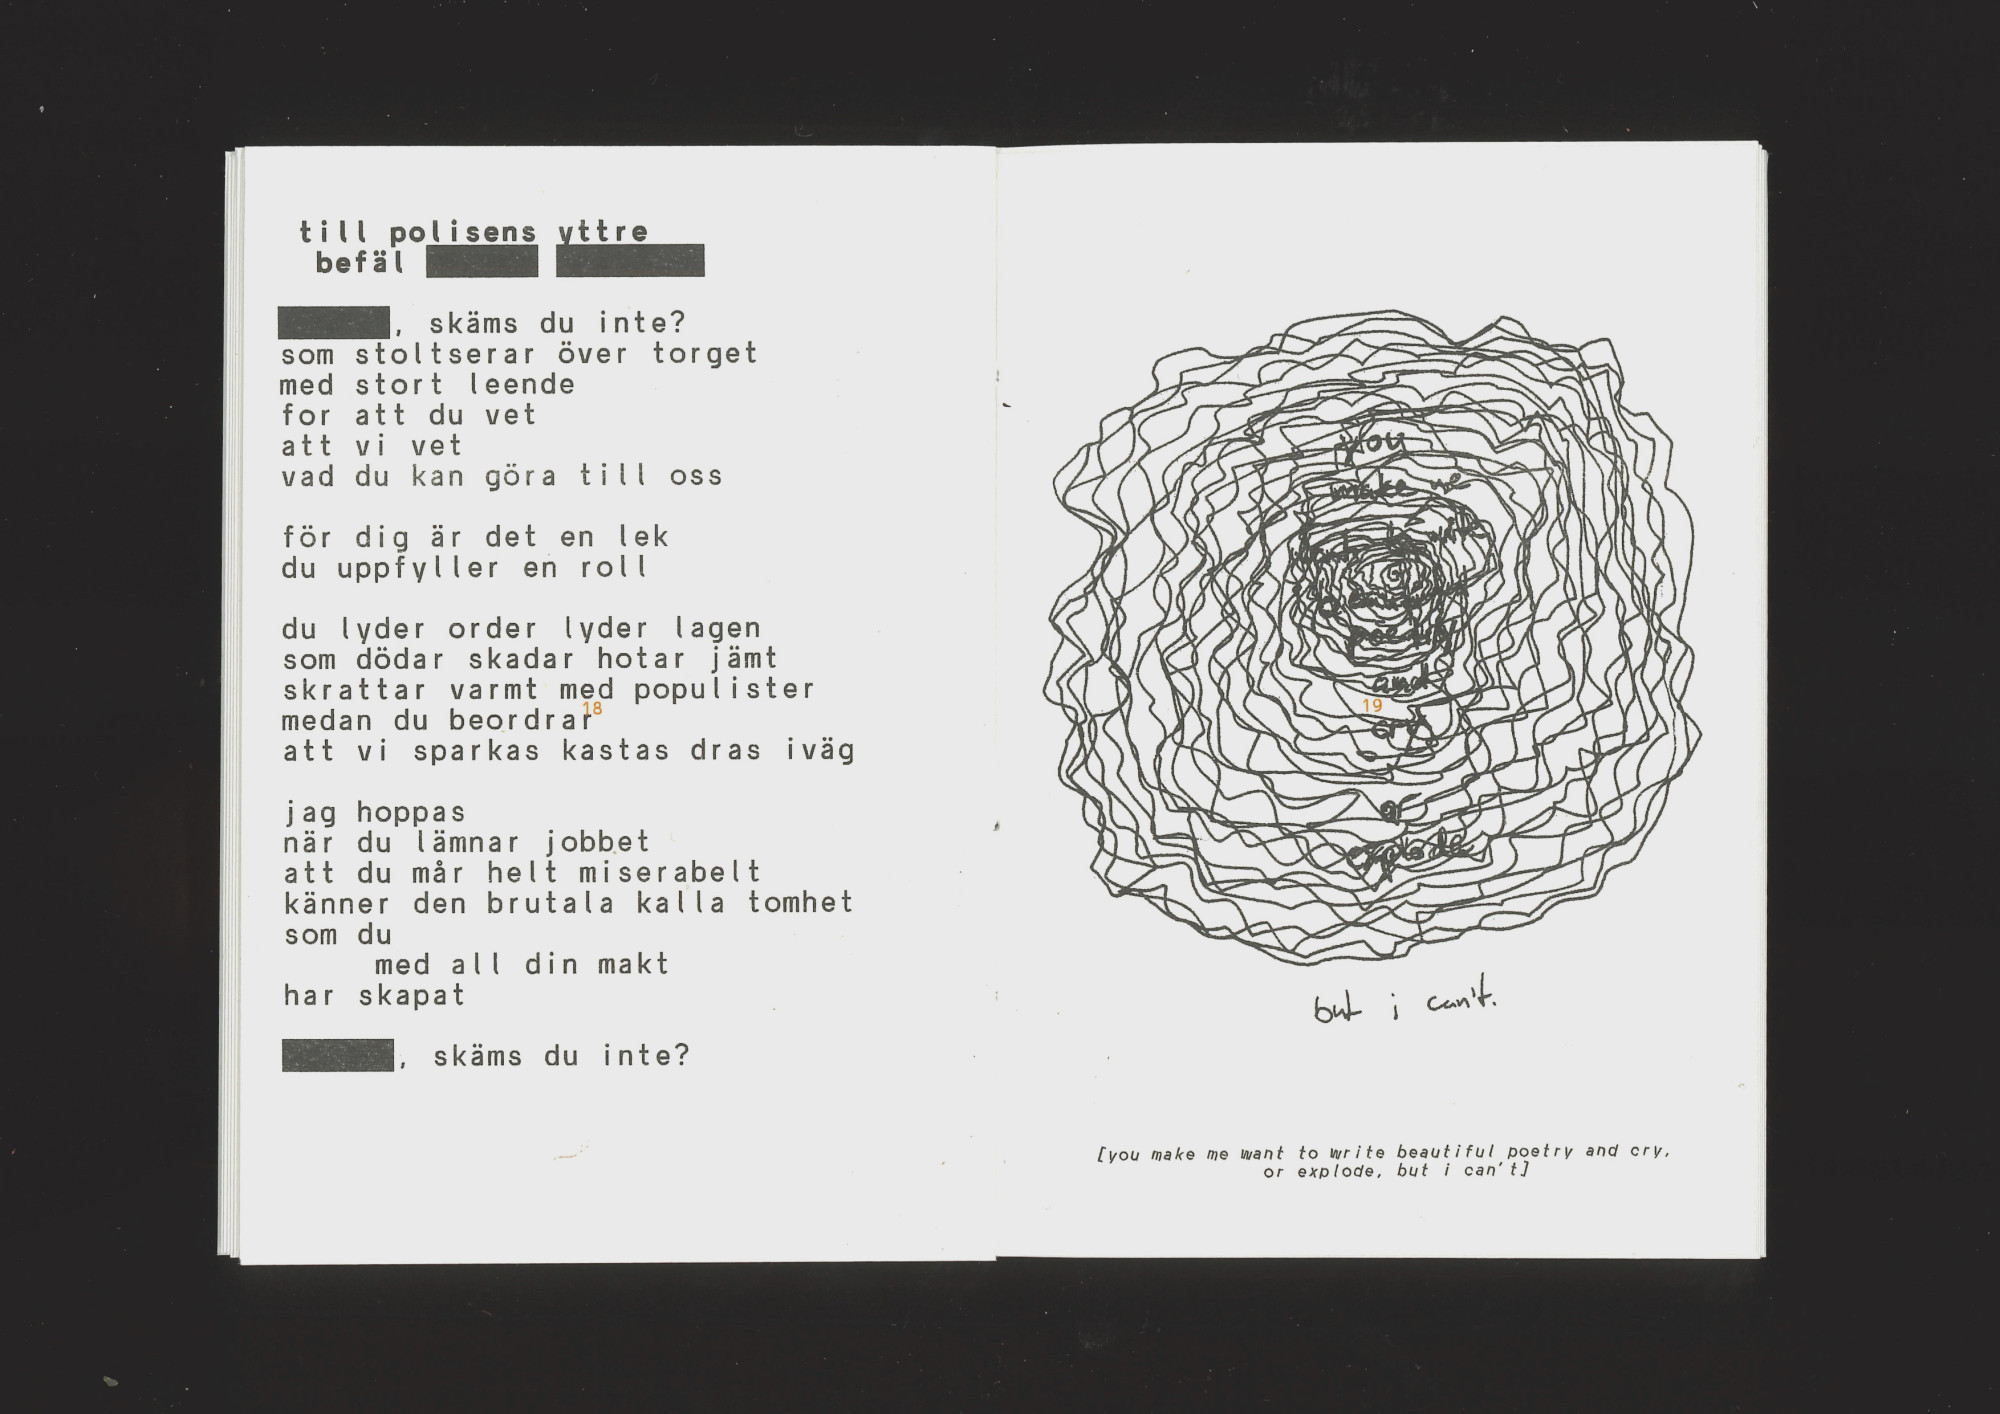 till polisens yttre
befäl
, skäms du inte?
som stoltserar över torget
med stort leende
for att du vet
att vi vet
vad du kan göra till oss
för dig är det en lek
du uppfyller en roll
du lyder order lyder lagen
som dödar skadar hotar jämt
skrattar varmt med populister
medan du beordrar
att vi sparkas kastas dras iväg
jag hoppas
när du lämnar jobbet
att du mår helt miserabelt
känner den brutala kalla tomhet
som du
med all din makt
har skapat
, skäms du inte?
18
you
make me
want to write
beautiful
poetry
and
19
cry
or
explode
but i can't.
[you make me want to write beautiful poetry and cry,
or explode, but i can't]